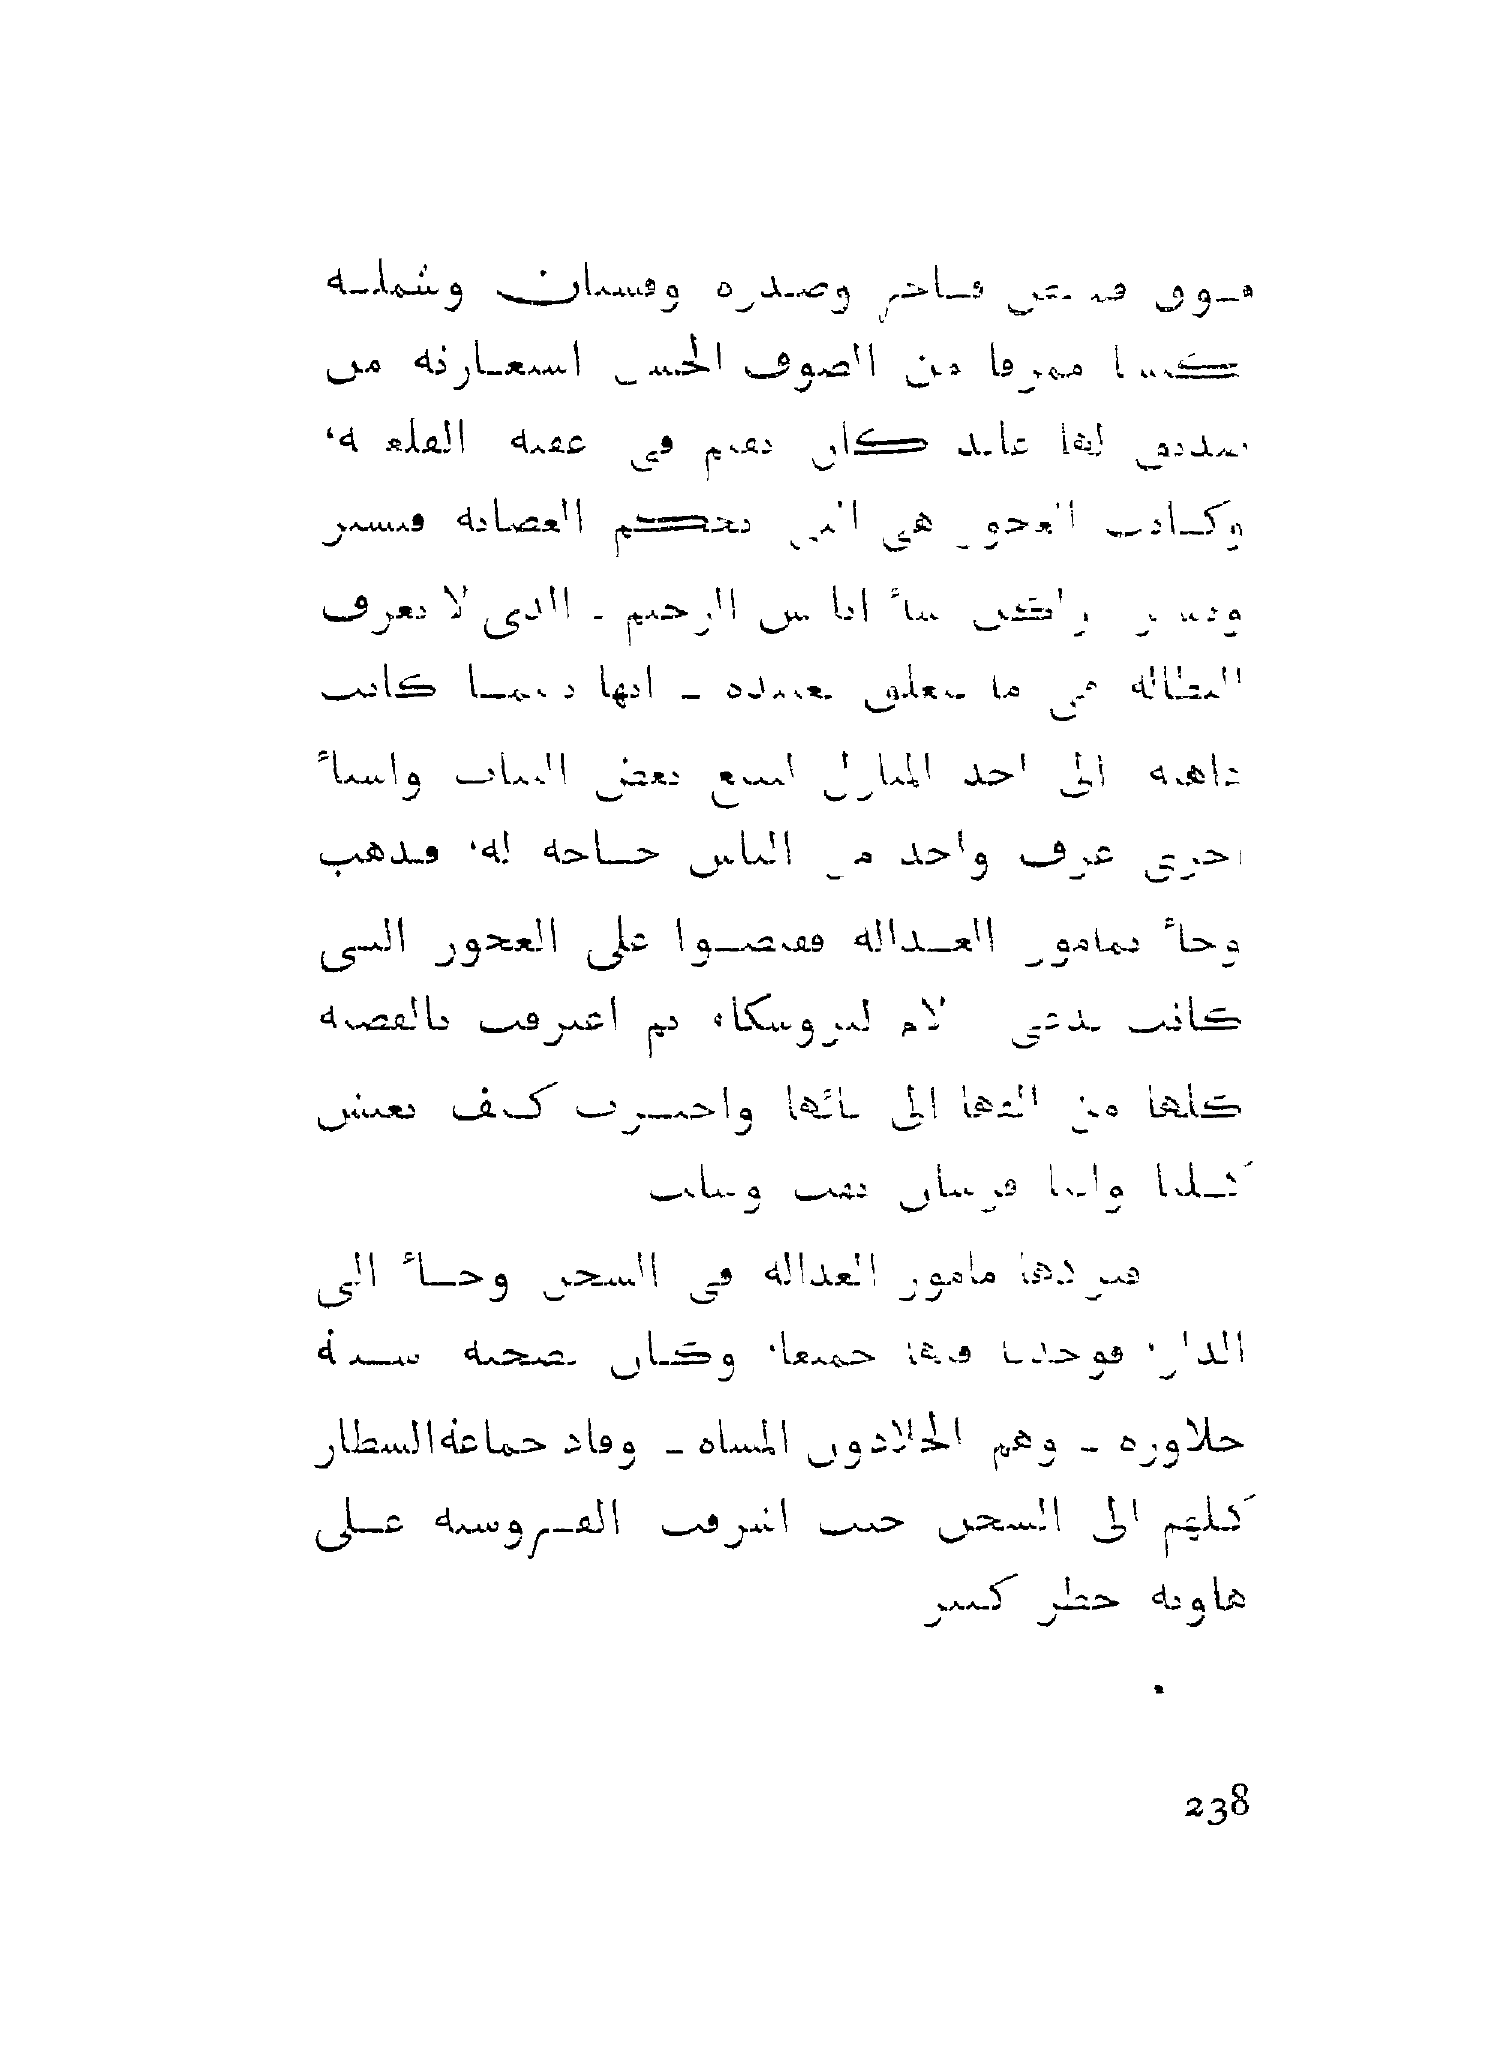 فوق قميص فاخر وصدره وفستان وشملـه
كيسا ممزقا من الصوف الخشن استعارته من
صديق لها عابد كان يقيم في عقبة القلعة،
وكانت العجوز هي التي تحكم العصابة فتسير
وتدبر ولكن شاء الناس الرحيم ـ الذي لا يعرف
البطالة في ما يتعلق بعبيده ـ انها بينما كانت
ذاهبة الى احد المنازل لبيع بعض الثياب واشياء
اخرى عرف واحد من الناس حاجة له، فذهب
وجاء بمامور العدالة فقبضوا على العجوز التي
كانت تدعى الام ليبروسكا، ثم اعترفت بالقصة
كلها من الفها الى يائها واخبرت كيف نعيش
كلنا واننا فرسان نهب وسلب
فتركها مامور العدالة في السجن وجاء الى
الدار، فوجدنا فيها جميعا، وكان بصحبته ستة
جلاوزة ـ وهم الجلادون المشاة ـ وقاد جماعة الشطار
كلهم الى السجن حيث اشرفت الفروسية على
هاوية خطر كبير
238